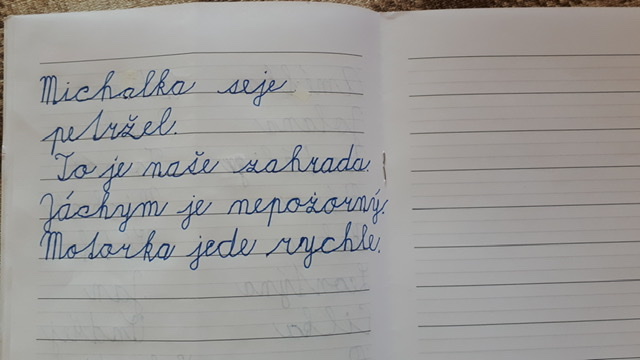 Michalka seje
petržel.
To je naše zahrada.
Jáchym je nepozorný.
Motorka jede rychle.